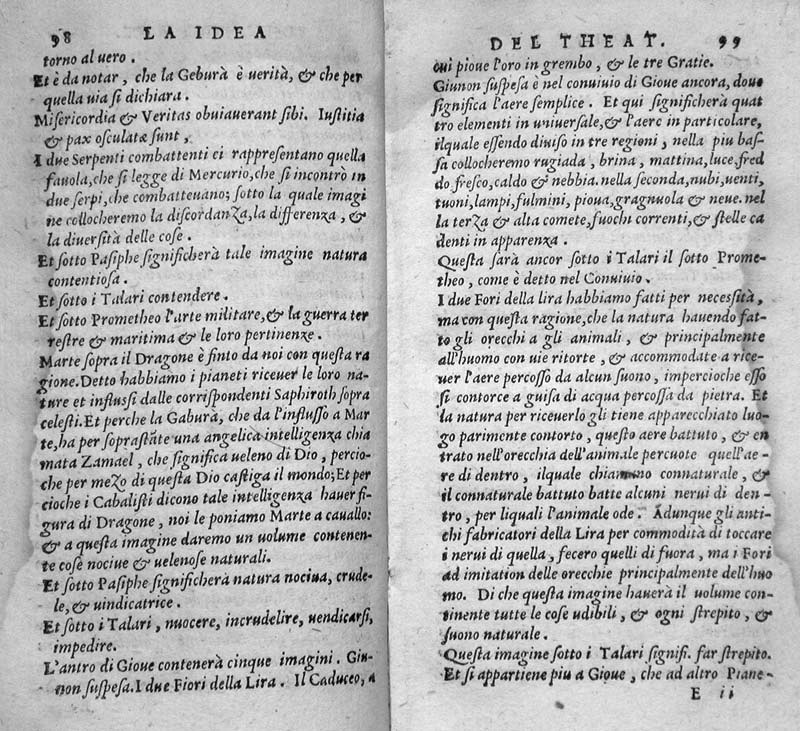 98 LA IDEA
torno al uero.
Et è da notar, che la Geburà è uerità, & che per
quella uia si dichiara.
Misericordia & Veritas obuiauerant sibi. Iustitia
& pax osculatæ sunt,
I due Serpenti combattenti ci rappresentano quella
fauola, che si legge di Mercurio, che si incontrò in
due serpi, che combatteuano; sotto la quale imagi
ne collocheremo la discordanza, la differenza, &
la diuersità delle cose.
Et sotto Pasiphe significherà tale imagine natura
contentiosa.
Et sotto i Talari contendere.
Et sotto Prometheo l'arte militare, & la guerra ter
restre & maritima & le loro pertinenze.
Marte sopra il Dragone è finto da noi con questa ra
gione. Detto habbiamo i pianeti riceuer le loro na-
ture et influssi dalle corrispondenti Saphiroth sopra
celesti. Et perche la Gaburà, che da l'influsso a Mar
te, ha per soprastãte una angelica intelligenza chia
mata Zamael, che significa ueleno di Dio, percio-
che per mezo di questa Dio castiga il mondo; Et per
cioche i Cabalisti dicono tale intelligenza hauer fi-
gura di Dragone, noi le poniamo Marte a cauallo:
& a questa imagine daremo un uolume contenen-
te cose nociue & uelenose naturali.
Et sotto Pasiphe significherà natura nociua, crude-
le, & uindicatrice.
Et sotto i Talari, nuocere, incrudelire, uendicarsi,
impedire.
L'antro di Gioue contenerà cinque imagini. Giu-
non suspesa. I due Fiori della Lira. Il Caduceo, a
DEL THEAT. 99
cui pioue l'oro in grembo, & le tre Gratie.
Giunon suspesa è nel conuiuio di Gioue ancora, doue
significa l'aere semplice. Et qui significherà quat
tro elementi in uniuersale, & l'aere in particolare,
ilquale essendo diuiso in tre regioni, nella piu bas-
sa collocheremo rugiada, brina, mattina, luce, fred
do, fresco, caldo & nebbia. nella seconda, nubi, uenti,
tuoni, lampi, fulmini, pioua, gragnuola & neue. nel
la terza & alta comete, fuochi correnti, & stelle ca
denti in apparenza.
Questa sarà ancor sotto i Talari il sotto Prome-
theo, come è detto nel Conuiuio.
I due Fori della lira habbiamo fatti per necessità,
ma con questa ragione, che la natura hauendo fat-
to gli orecchi a gli animali, & principalmente
all'huomo con uie ritorte, & accommodate a rice-
uer l'aere percosso da alcun suono, impercioche esso
si contorce a guisa di acqua percossa da pietra. Et
la natura per riceuerlo gli tiene apparecchiato luo-
go parimente contorto, questo aere battuto, & en
trato nell'orecchia dell'animale percuote quell'ae-
re di dentro, ilquale chiamano connaturale, &
il connaturale battuto batte alcuni nerui di den-
tro, per liquali l'animale ode. Adunque gli anti-
chi fabricatori della Lira per commodità di toccare
i nerui di quella, fecero quelli di fuora, ma i Fori
ad imitation delle orecchie principalmente dell'huo
mo. Di che questa imagine hauerà il uolume con-
tinente tutte le cose udibili, & ogni strepito, &
suono naturale.
Questa imagine sotto i Talari signifi. far strepito.
Et si appartiene piu a Gioue, che ad altro Piane-
E ii